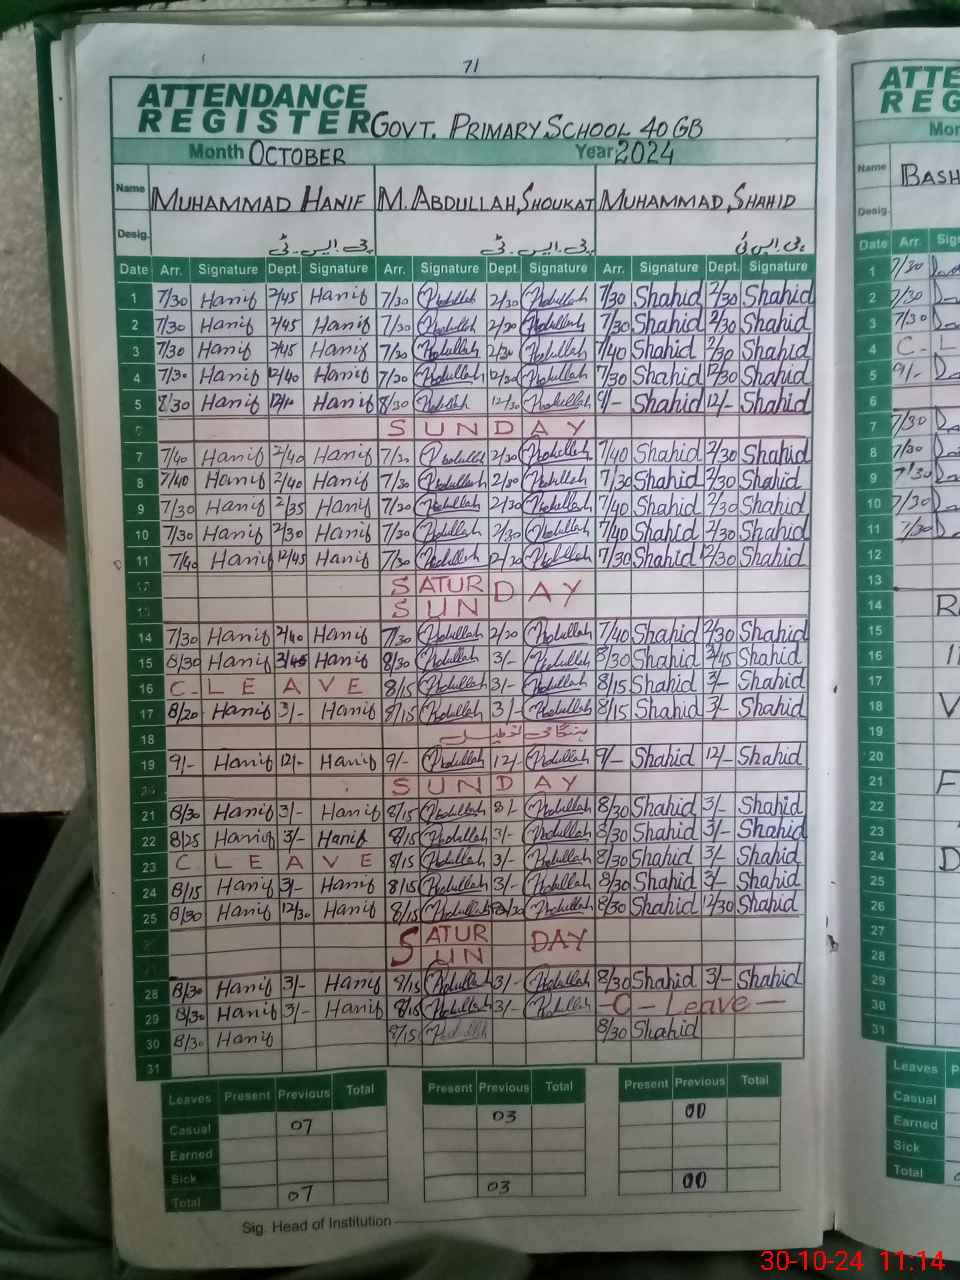 71
ATTENDANCE
REGISTER GOVT. PRIMARY SCHOOL 40 GB
Month OCTOBER Year 2024
Name MUHAMMAD HANIF M. ABDULLAH, SHOUKAT MUHAMMAD, SHAHID
Desig. پی۔ایس۔ٹی پی۔ایس۔ٹی پی۔ایس۔ٹی
Date Arr. Signature Dept. Signature Arr. Signature Dept. Signature Arr. Signature Dept. Signature
1 7/30 Hanif 2/45 Hanif 7/30 Abdullah 2/30 Abdullah 7/30 Shahid 2/30 Shahid
2 7/30 Hanif 2/45 Hanif 7/30 Abdullah 2/30 Abdullah 7/30 Shahid 2/30 Shahid
3 7/30 Hanif 2/45 Hanif 7/30 Abdullah 2/30 Abdullah 7/40 Shahid 2/30 Shahid
4 7/30 Hanif 12/40 Hanif 7/30 Abdullah 12/30 Abdullah 7/30 Shahid 12/30 Shahid
5 8/30 Hanif Hanif 8/30 Abdullah 12/30 Abdullah 9/- Shahid 12/- Shahid
6 SUNDAY
7 7/40 Hanif 2/40 Hanif 7/30 Abdullah 2/30 Abdullah 7/40 Shahid 2/30 Shahid
8 7/40 Hanif 2/40 Hanif 7/30 Abdullah 2/30 Abdullah 7/30 Shahid 2/30 Shahid
9 7/30 Hanif 2/35 Hanif 7/30 Abdullah 2/30 Abdullah 7/40 Shahid 2/30 Shahid
10 7/30 Hanif 2/30 Hanif 7/30 Abdullah 2/30 Abdullah 7/40 Shahid 2/30 Shahid
11 7/40 Hanif 12/45 Hanif 7/30 Abdullah 12/30 Abdullah 7/30 Shahid 12/30 Shahid
12 SATUR DAY
13 SUN
14 7/30 Hanif 2/40 Hanif 7/30 Abdullah 2/30 Abdullah 7/40 Shahid 2/30 Shahid
15 8/30 Hanif 3/45 Hanif 8/30 Abdullah 3/- Abdullah 8/30 Shahid 3/45 Shahid
16 C-LEAVE 8/15 Abdullah 3/- Abdullah 8/15 Shahid 3/- Shahid
17 8/20 Hanif 3/- Hanif 8/15 Abdullah 3/- Abdullah 8/15 Shahid 3/- Shahid
18 ہنگامی تعطیل
19 9/- Hanif 12/- Hanif 9/- Abdullah 12/- Abdullah 9/- Shahid 12/- Shahid
20 SUNDAY
21 8/30 Hanif 3/- Hanif 8/15 Abdullah Abdullah 8/30 Shahid 3/- Shahid
22 8/25 Hanif 3/- Hanif 8/15 Abdullah 3/- Abdullah 8/30 Shahid 3/- Shahid
23 C LEAVE 8/15 Abdullah 3/- Abdullah 8/30 Shahid 3/- Shahid
24 8/15 Hanif 3/- Hanif 8/15 Abdullah 3/- Abdullah 8/30 Shahid 3/- Shahid
25 8/30 Hanif 12/30 Hanif 8/15 Abdullah Abdullah 8/30 Shahid 12/30 Shahid
SATUR DAY
SUN
28 8/30 Hanif 3/- Hanif 8/15 Abdullah 3/- Abdullah 8/30 Shahid 3/- Shahid
29 8/30 Hanif 3/- Hanif 8/15 Abdullah 3/- Abdullah -C- Leave-
30 8/30 Hanif 8/15 Abdullah 8/30 Shahid
31
Leaves Present Previous Total Present Previous Total Present Previous Total
Casual 07 03 00
Earned
Sick
Total 07 03 00
Sig. Head of Institution
ATTE
REG
Mon
Name BASH
Desig.
Date Arr. Sig
1 7/30
2 7/30
3 7/30
4 C-L
5 9/-
6
7 7/30
8 7/30
9 7/30
10 7/30
11 7/30
12
13
14 R
15
16
17
18 V
19
20
21 F
22
23
24 D
25
26
27
28
29
30
31
Leaves P
Casual
Earned
Sick
Total
30-10-24 11:14